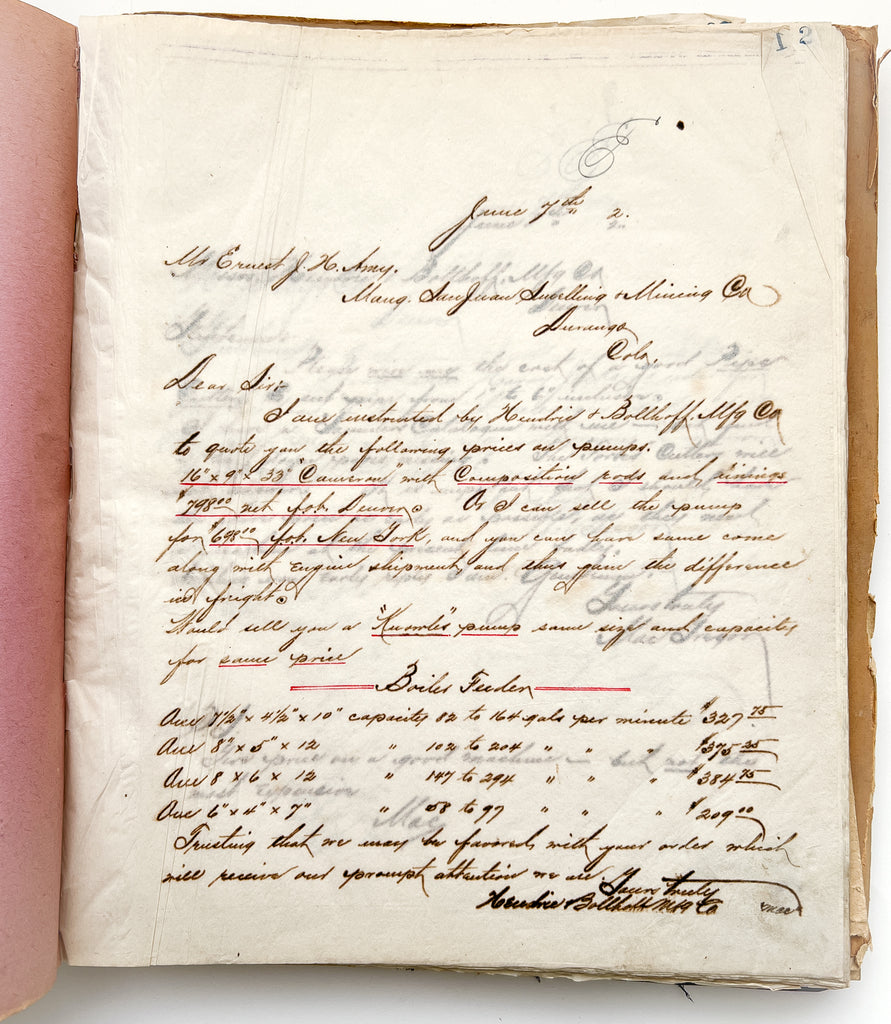 12
E
June 7th 2.
Mr Ernest J. H. Amy.
Mang. San Juan Smelting & Mining Co
Durango
Colo.
Dear Sir:
I am instructed by Hendrie & Bolthoff Mfg Co
to quote you the following prices on pumps.
16" x 9" x 33" "Cameron" with Composition rods and linings
$798.00 net fob. Denver. Or I can sell the pump
for $698.00 fob. New York, and you can have same come
along with Engine shipment, and thus gain the difference
in freight.
Would sell you a "Knowles" pump same size and capacity
for same price
Boiler Feeder
One 7½" x 4½" x 10" capacity 82 to 164 gals per minute $327.75
One 8" x 5" x 12 " 102 to 204 " " " $375.25
One 8 x 6 x 12 " 147 to 294 " " " $384.75
One 6" x 4" x 7" " 58 to 97 " " " $209.00
Trusting that we may be favored with your order which
will receive our prompt attention we are. Yours truly
Hendrie & Bolthoff Mfg Co